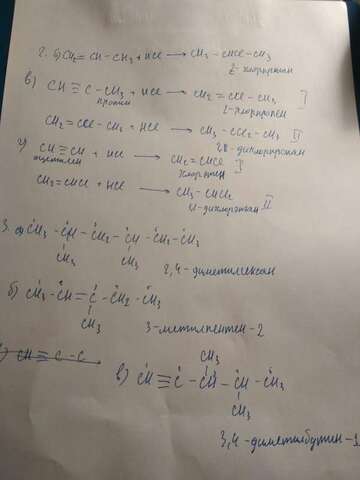 2. б) CH₂ = CH – CH₃ + HCl ⟶ CH₃ – CHCl – CH₃
2-хлорпропан
в) CH ≡ C – CH₃ + HCl ⟶ CH₂ = CCl – CH₃ I
пропин 2-хлорпропен
CH₂ = CCl – CH₃ + HCl ⟶ CH₃ – CCl₂ – CH₃ II
2,2-дихлорпропан
г) CH ≡ CH + HCl ⟶ CH₂ = CHCl I
ацетилен хлорэтен
CH₂ = CHCl + HCl ⟶ CH₃ – CHCl₂ II
1,1-дихлорэтан
3. а) CH₃ – CH – CH₂ – CH – CH₂ – CH₃
CH₃ CH₃
2,4-диметилгексан
б) CH₃ – CH = C – CH₂ – CH₃
CH₃
3-метилпентен-2
CH ≡ C – C
CH₃
в) CH ≡ C – CH – CH – CH₃
CH₃
3,4-диметилбутин-1